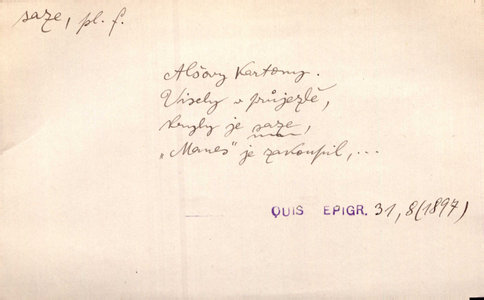 saze, pl. f.
Alšovy Kartony.
Visely v průjezdě,
kryly je saze,
„Manes" je zakoupil,...
QUIS EPIGR. 31, 8 (1897)